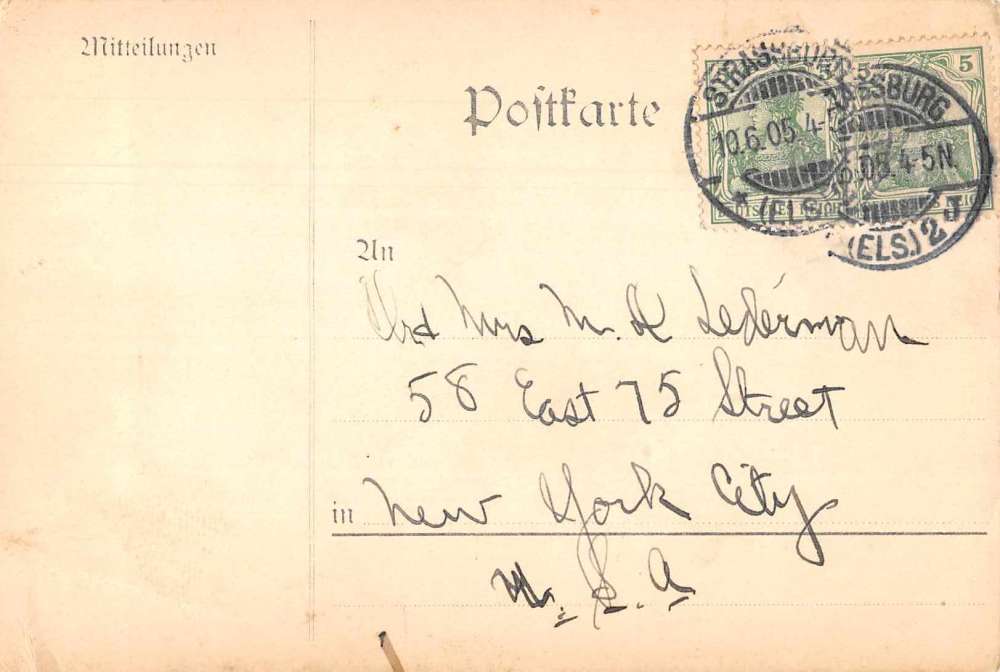 Mitteilungen
Postkarte
STRASSBURG
10.6.05. 4-5
(ELS
STRASSBURG
.05. 4-5N.
(ELS.) 2 J
5
5
An
Mrs M. Lederman
58 East 75 Street
in New York City
U. S. A